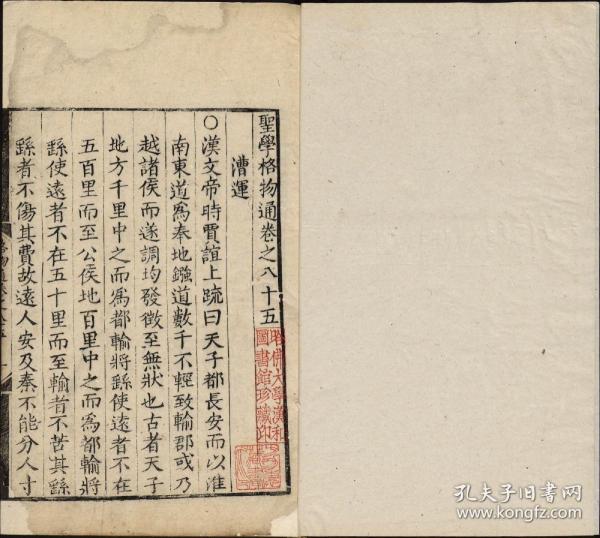 聖學格物通卷之八十五
漕運
〇漢文帝時賈誼上疏曰天子都長安而以淮
南東道為奉地鏹道數千不輕致輸郡或乃
越諸侯而遂調均發徵至無狀也古者天子
地方千里中之而為都輸將繇使遠者不在
五百里而至公侯地百里中之而為都輸將
繇使遠者不在五十里而至輸者不苦其繇
繇者不傷其費故遠人安及秦不能分人寸
哈佛大學漢和
圖書館珍藏印
孔夫子旧书网
www.kongfz.com